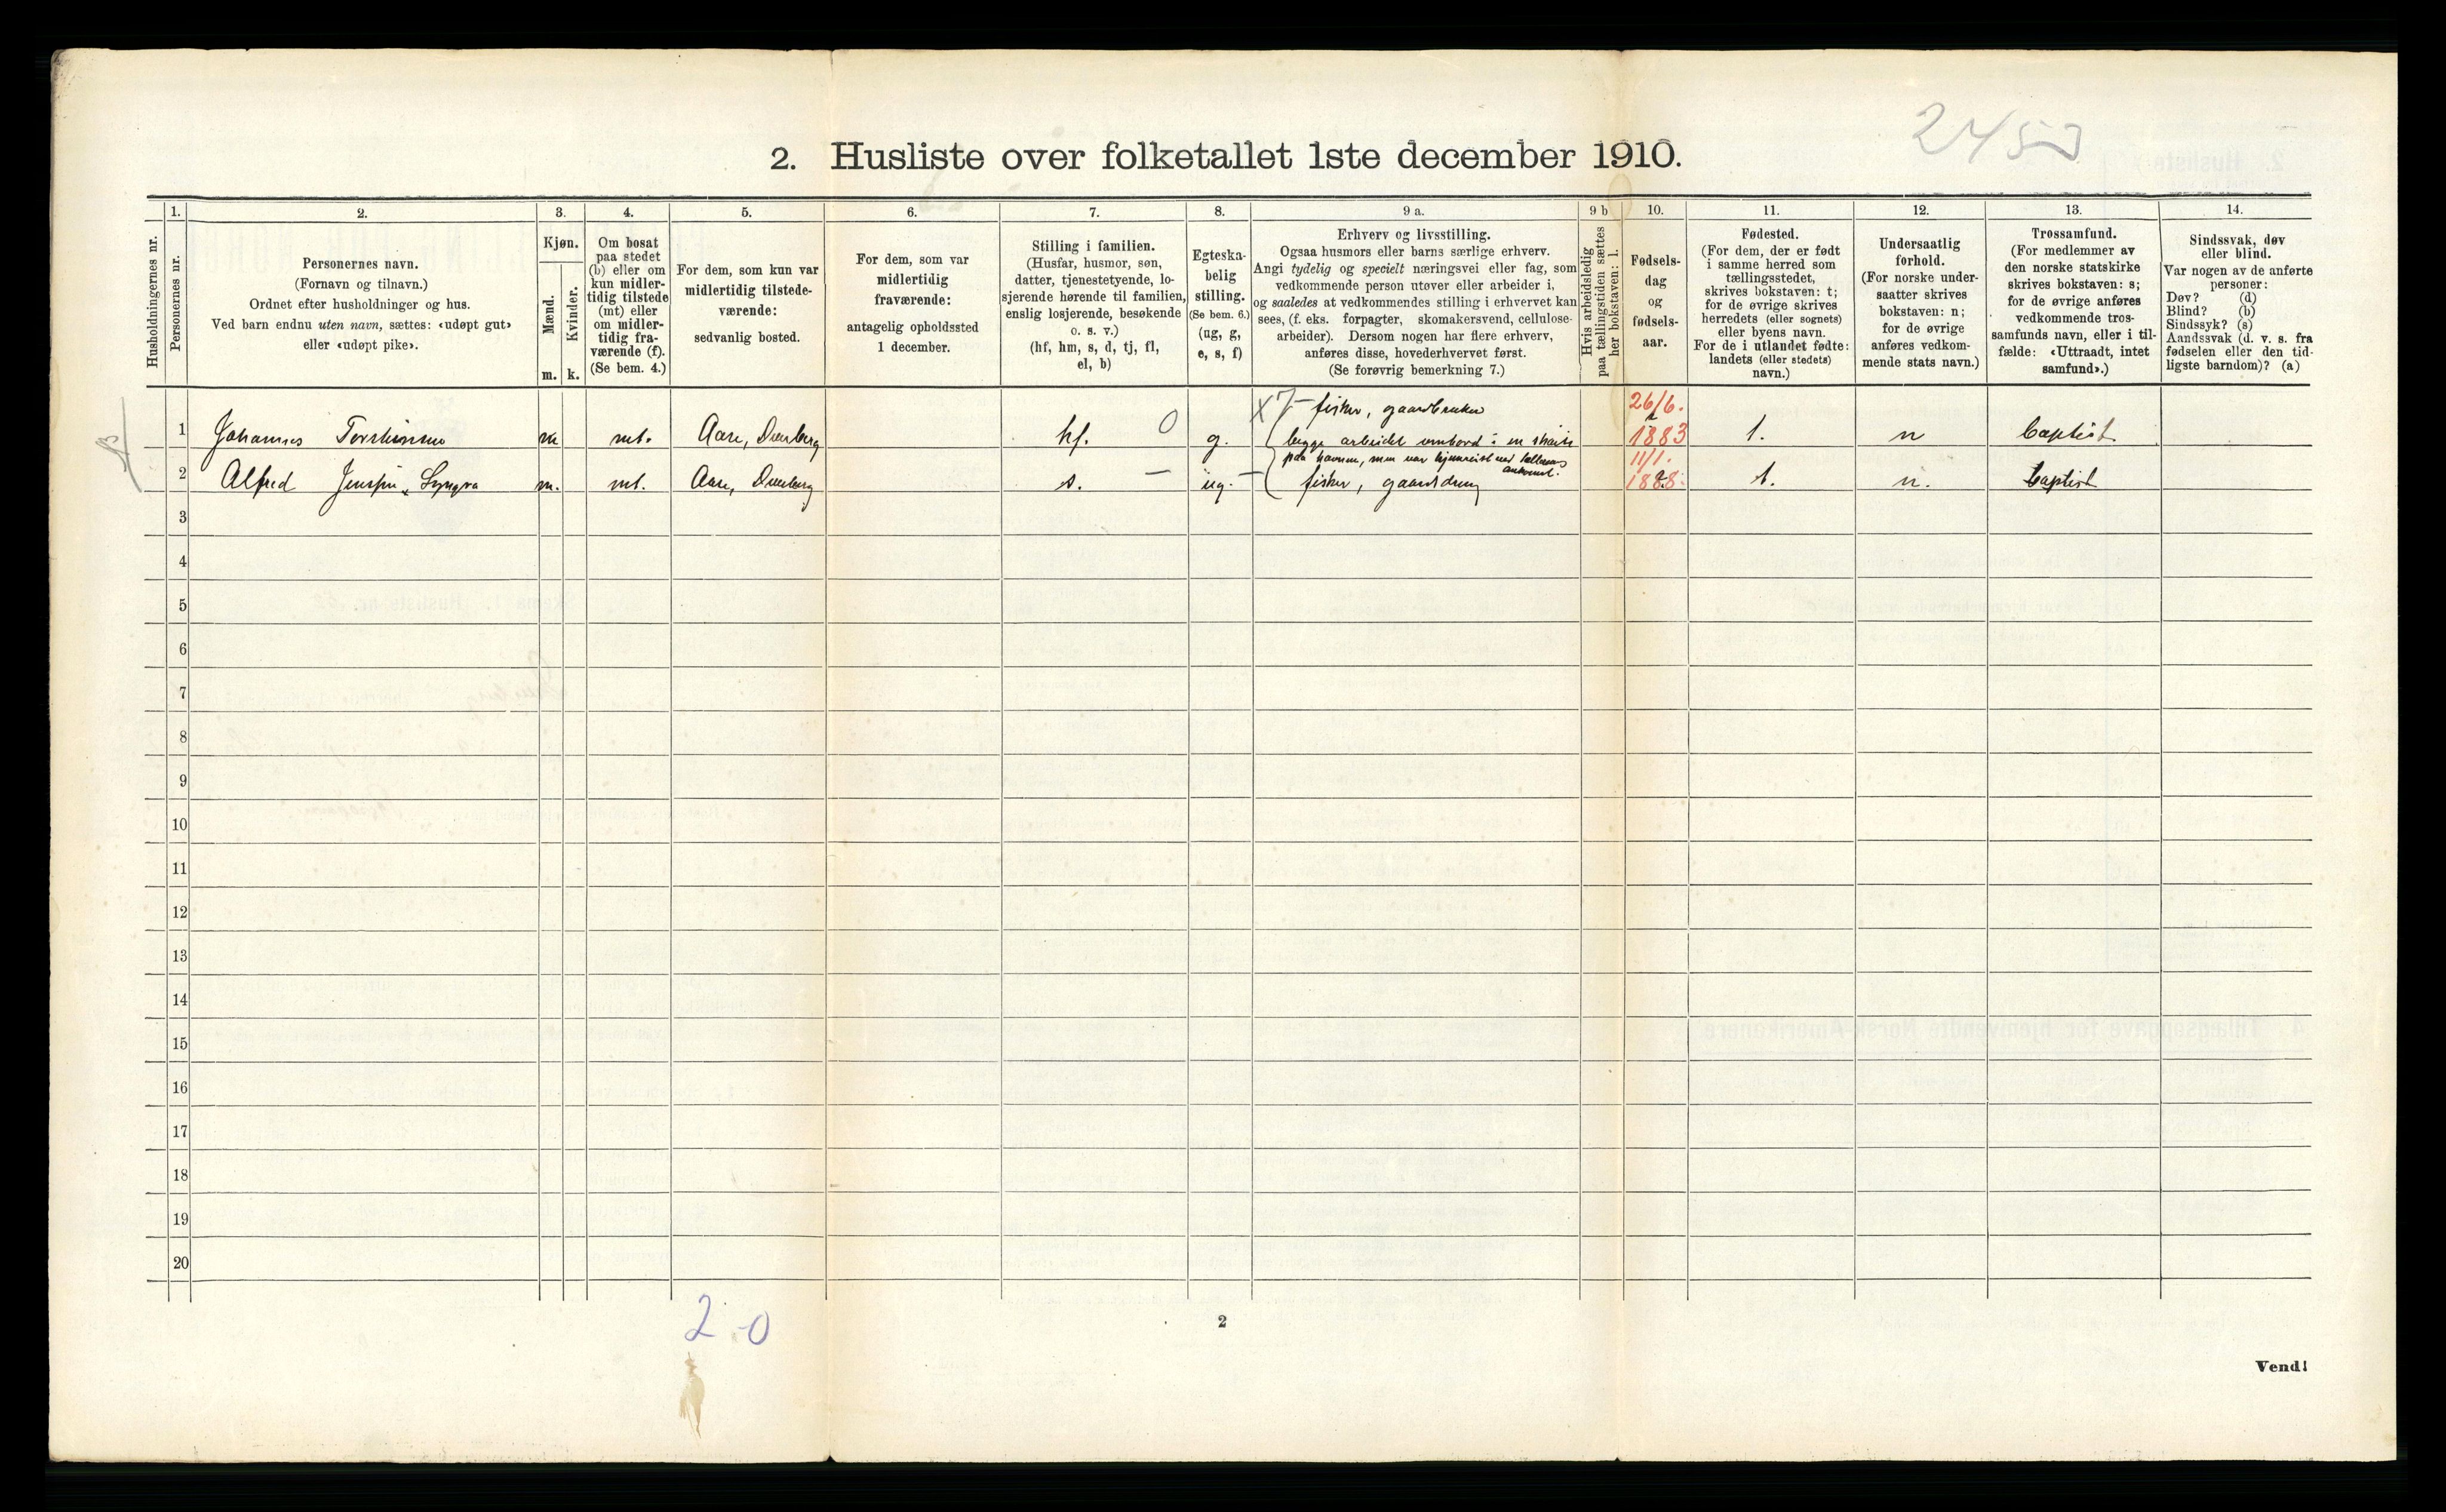 2453
2. Husliste over folketallet 1ste december 1910.
Husholdningernes nr.
1.
Personernes nr.
2.
Personernes navn.
(Fornavn og tilnavn.)
Ordnet efter husholdninger og hus.
Ved barn endnu uten navn, sættes: «udøpt gut»
eller «udøpt pike».
3.
Kjøn.
Mænd.
Kvinder.
m. k.
4.
Om bosat
paa stedet
(b) eller om
kun midler-
tidig tilstede
(mt) eller
om midler-
tidig fra-
værende (f).
(Se bem. 4.)
5.
For dem, som kun var
midlertidig tilstede-
værende:
sedvanlig bosted.
6.
For dem, som var
midlertidig
fraværende:
antagelig opholdssted
1 december.
7.
Stilling i familien.
(Husfar, husmor, søn,
datter, tjenestetyende, lo-
sjerende hørende til familien,
enslig losjerende, besøkende
o. s. v.)
(hf, hm, s, d, tj, fl,
el, b)
8.
Egteska-
belig
stilling.
(Se bem. 6.)
(ug, g,
e, s, f)
9 a.
Erhverv og livsstilling.
Ogsaa husmors eller barns særlige erhverv.
Angi tydelig og specielt næringsvei eller fag, som
vedkommende person utøver eller arbeider i,
og saaledes at vedkommendes stilling i erhvervet kan
sees, (f. eks. forpagter, skomakersvend, cellulose-
arbeider). Dersom nogen har flere erhverv,
anføres disse, hovederhvervet først.
(Se forøvrig bemerkning 7.)
9 b
Hvis arbeidsledig
paa tællingstiden sættes
her bokstaven: l.
10.
Fødsels-
dag
og
fødsels-
aar.
11.
Fødested.
(For dem, der er født
i samme herred som
tællingsstedet,
skrives bokstaven: t;
for de øvrige skrives
herredets (eller sognets)
eller byens navn.
For de i utlandet fødte:
landets (eller stedets)
navn.)
12.
Undersaatlig
forhold.
(For norske under-
saatter skrives
bokstaven: n;
for de øvrige
anføres vedkom-
mende stats navn.)
13.
Trossamfund.
(For medlemmer av
den norske statskirke
skrives bokstaven: s;
for de øvrige anføres
vedkommende tros-
samfunds navn, eller i til-
fælde: «Uttraadt, intet
samfund».)
14.
Sindssvak, døv
eller blind.
Var nogen av de anførte
personer:
Døv? (d)
Blind? (b)
Sindssyk? (s)
Aandssvak (d. v. s. fra
fødselen eller den tid-
ligste barndom)? (a)
1 Johannes m mt. Aase, hf. 0 g. X 7 fisker, gaardbruker 26/6. 1883 t. n baptist
begge arbeidet ombord i en
paa havnen, men var hjemreist ved
2 Alfred Jenssen m. mt. Aase, s. – ug. – fisker, gaardsdreng 11/1. 1888. t. n. baptist
3
4
5
6
7
8
9
10
11
12
13
14
15
16
17
18
19
20
2-0
2
Vend!